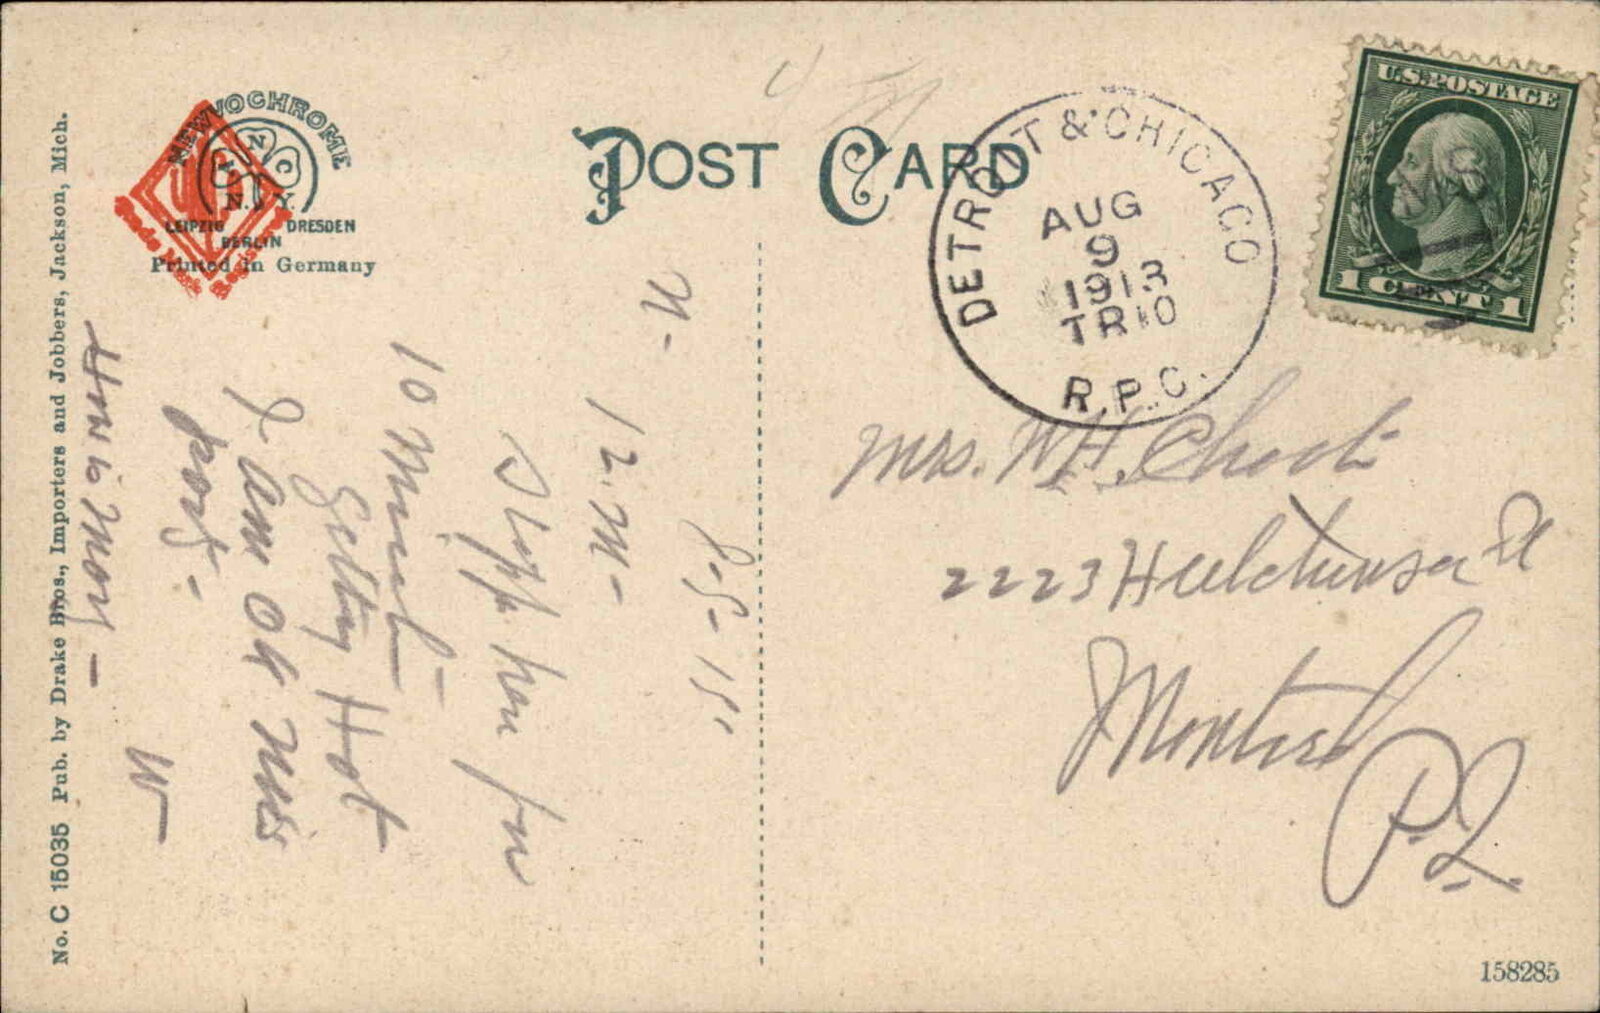 No. C 15035 Pub. by Drake Bros., Importers and Jobbers, Jackson, Mich.
NEWVOCHROME
N
L C
N. Y.
LEIPZIG DRESDEN
BERLIN
Printed in Germany
Trade Mark
POST CARD
DETROIT & CHICAGO
AUG
9
1913
TR10
R.P.O.
U.S. POSTAGE
1 CENT 1
RMS
8-9-13
12. M-
Stopp here for
10 Minut-
Getting Hot
I am OK this
Mrs. W.H.
2223 Hutchinson St
Montreal
P.Q.
158285